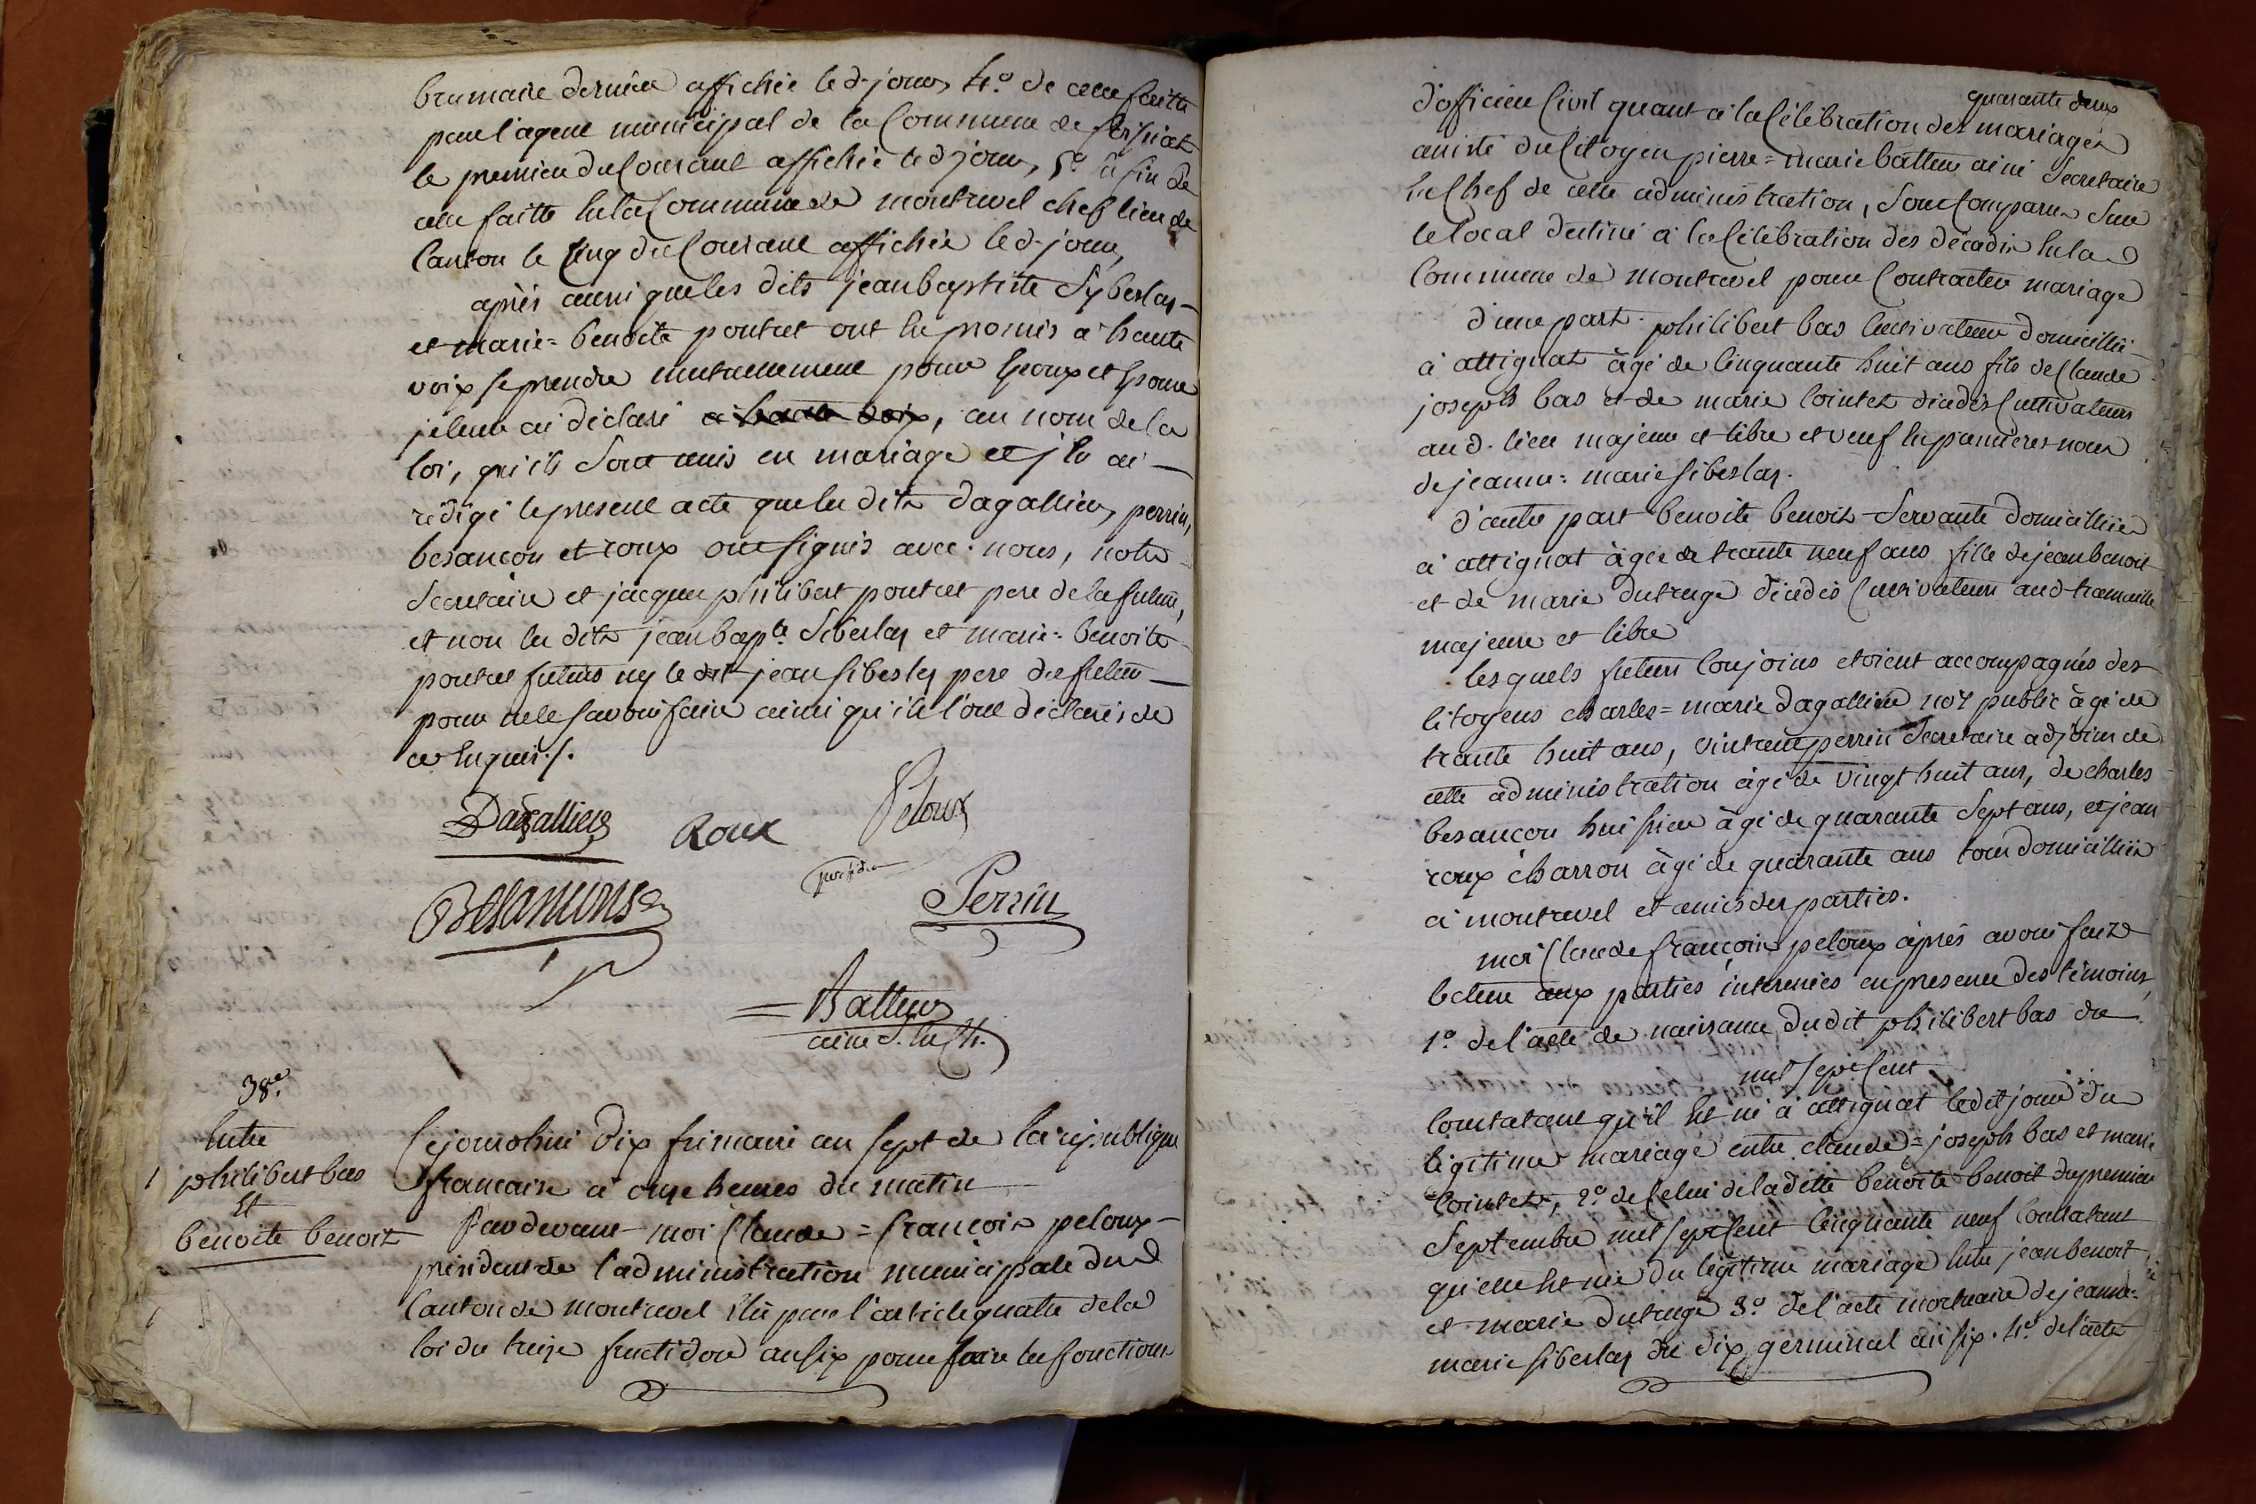 brumaire dernier affichée led. jour, 4.° de celle faitte
par l'agent municipal de la Commune de
le premier du Courant affichée led. jour, 5.° enfin de
celle faitte en la Commune de montrevel chef lieu de
Canton le Cinq du Courant affichée led. jour,
après aussi que les dits jean baptiste Syberlas
et marie=benoite pontut ont en promis à haute
voix se prendre mutuellement pour Epoux et Epouse
je leur ai déclaré a haute voix, au nom de la
loi, qu'ils Sont unis en mariage et j'en ai
rédigé le present acte que les dits dagallier, perrin,
besançon et roux ont signés avec nous, notre
Secretaire et jacque philibert pontut pere de la future,
et non les dits jean bapt.te Siberlas et marie=benoite
pontut futurs ny le dit jean siberlas pere du futur
pour ne le savoir faire ainsi qu'ils l'ont déclarés de
ce Enquis./.
Dagallier Roux Peloux
president
Besançons Perrin
= Battur
ainé S. en Ch.
38.e
Entre
philibert bas
Et
benoite benoit
Cejourdhui Dix frimaire an Sept de la republique
francaise à onze heures du matin
Pardevant moi Claude=francois peloux
president de l'administration municipale dud.
Canton de montrevel élu par l'article quatre de la
loi du treize fructidor an six pour faire les fonctions
quarante deux
d'officier Civil quant à la Célébration des mariages
assisté du Citoyen pierre=marie battur ainé Secretaire
en Chef de cette administration, Sont Comparus Sur
le local destiné à la Célébration des décadis en la d.
Commune de montrevel pour Contracter mariage
d'une part. philibert bas Cultivateur domicillié
à attignat âgé de Cinquante huit ans fils de Claude
joseph bas et de marie Cointet décédés Cultivateurs
aud. lieu majeur et libre et veuf en premieres noces
de jeanne=marie siberlas.
d'autre part benoite benoit Servante domicilliée
à attignat âgée de trante neuf ans fille de jean benoit
et de marie dutruge décédés Cultivateurs aud.
majeure et libre
lesquels futurs Conjoins etoient accompagnés des
Citoyens charles=marie dagallier no.re public âgé de
trante huit ans, vintrant perrin Secretaire adjoint de
cette administration âgé de vingt huit ans, de charles
besançon huissier âgé de quarante Sept ans, et jean
roux charron âgé de quarante ans tous domicilliés
à montrevel et amis des parties.
moi Claude françois peloux après avoir faite
lecture aux parties interessées en presence des témoins,
1.° de l'acte de naissance dudit philibert bas du
mil Sept Cent
Constatant qu'il Est né à attignat ledit jour du
légitime mariage entre claude=joseph bas et marie
Cointet, 2.° de Celui de la dette benoite benoit du premier
Septembre mil Sept Cent Cinquante neuf Constatant
qu'elle Est née du légitime mariage Entre jean benoit
et marie dutruge 3.° de l'acte mortuaire de jeanne=
marie siberlas du dix germinal an six. 4.° de l'acte